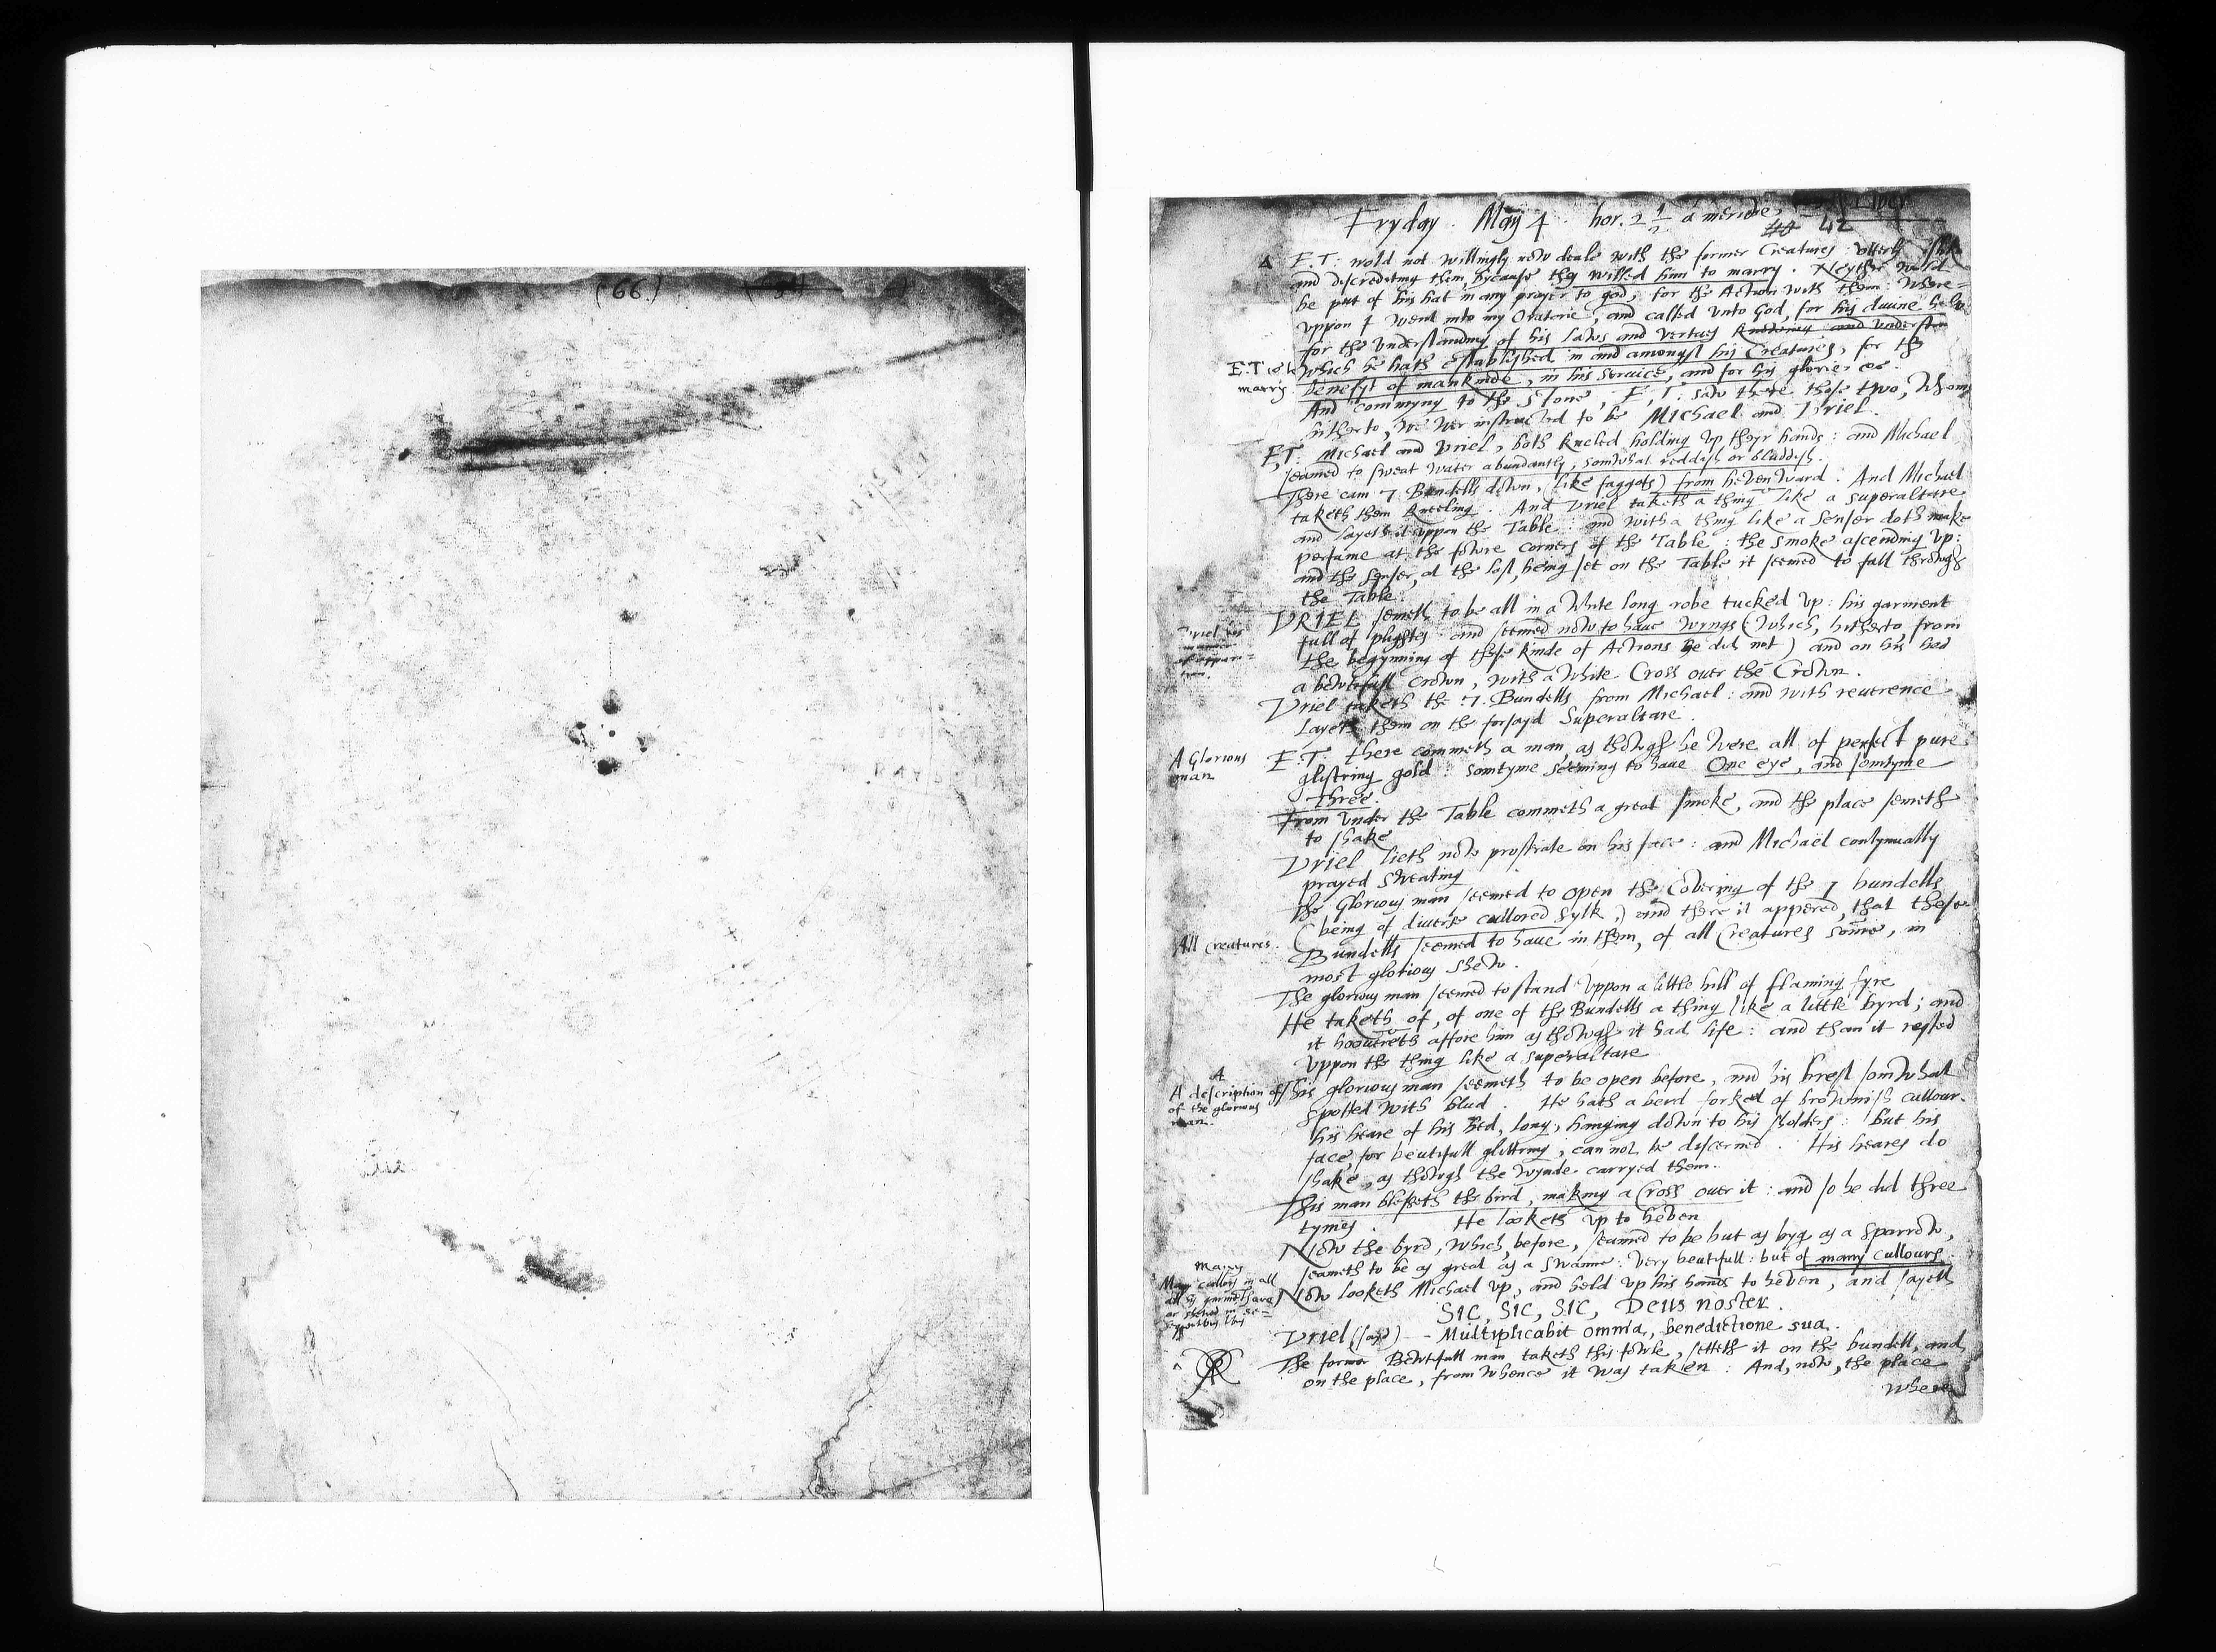 (66.)
Fryday . May 4 . hor. 2 1/2 a meridie 42
Δ E.T. wold not willingly now deale with the former Creatures vtterly
and discrediting them, bycause they willed him to marry . Neyther wold
he put of his hat in any prayer to god, for the Action with them : Where=
vppon I went into my Oratorie, and called vnto God, for his diuine help
for the vnderstanding of his Laws and vertues
E.T marry
which he hath established in and amongst his Creatures, for the
benefyt of mankinde, in his service, and for his glorie: &c.
And commyng to the Stone, E.T: saw there those two, Whom,
hitherto, we wer instructed to be Michael and Vriel.
E.T. Michael and Vriel, both kneeled holding vp theyr hands : and Michael
seamed to sweat water abundantly, somwhat reddish or bluddish.
There cam 7 Bundells down, (like faggots) from hevenward : And Michael
taketh them kneeling . And Vriel taketh a thing like a superaltare
and layeth it vppon the Table : and with a thing like a Senser doth make
perfume at the fowre corners of the Table : the smoke ascending vp:
and the Senser, at the last, being set on the Table it seemed to fall throwgh
the Table.
Vriel his manner of appari= tion.
VRIEL semeth to be all in a white long robe tucked vp : his garment
full of plightes and seemed now to haue wyngs (which, hitherto from
the begynning of these kinde of Actions he did not) and on his hed
a bewtifull Crown, with a White Cross ouer the Crown.
Vriel taketh the 7. Bundells from Michael : and with reuerence
layeth them on the forsayd Superaltare .
A Glorious man
E.T. there commeth a man, as thowgh he were all of perfect pure
glistring gold : somtyme seeming to haue One eye, and somtyme
three.
From vnder the Table commeth a great smoke, and the place semeth
to shake
Vriel lieth now prostrate on his face : and Michael contynually
prayed sweating
The Glorious man seemed to open the Covering of the 7 bundells
(being of diuerse cullored sylk,) and there it appered, that these
All Creatures.
Bundells seemed to haue in them, of all Creatures some, in
most glorious shew .
The glorious man seemed to stand vppon a little hill of flaming fyre
He taketh of, of one of the Bundells a thing like a little byrd ; and
it hooureth affore him as thowgh it had life : and than it rested
vppon the thing like a superaltare
A
A description of the glorious man.
This glorious man seemeth to be open before, and his brest somwhat
spotted with blud . He hath a berd forked of brownish cullour.
his heare of his hed, long, hanging down to his sholders : but his
face, for beutifull glittring, can not be discerned . His heares do
shake, as thowgh the wynde carryed them.
This man blesseth the bird, making a Cross ouer it : and so he did three
tymes . He looketh vp to heven
Now the byrd, which before, seamed to be but as byg as a sparrow,
seameth to be as great as a swanne: very beutifull : but of many cullours.
many
Now looketh Michael vp, and held vp his hands to heven, and sayeth
SIC, SIC, SIC, Deus noster .
Vriel (says) -- Multiplicabit omnia, benedictione sua.
The former Bewtifull man taketh this fowle, setteth it on the bundell, and,
on the place, from whence it was taken : And, now, the place
where